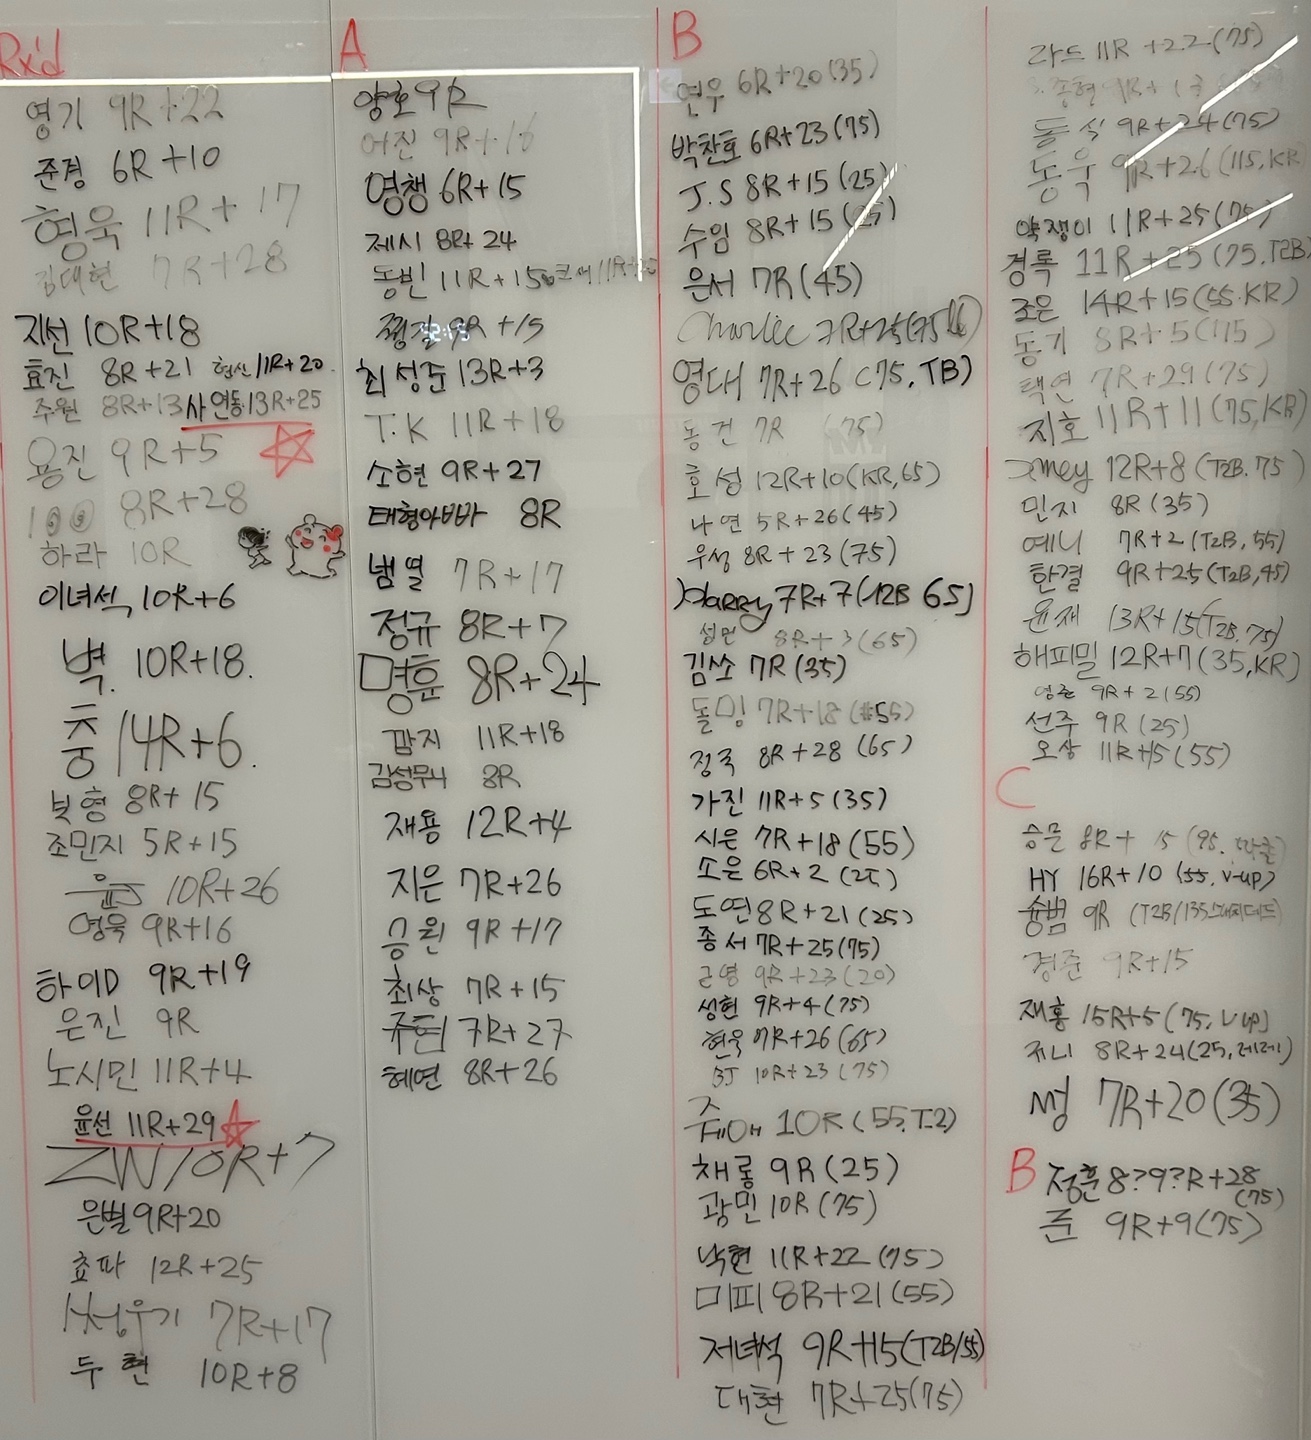 Rx'd
영기 9R+22
준경 6R+10
형욱 11R+17
김대현 7R+28
지선 10R+18
효진 8R+21 현신 11R+20
주원 8R+13 사연동 13R+25
용진 9R+5
8R+28
하라 10R
이녀석 10R+6
벽. 10R+18.
충 14R+6.
봇형 8R+15
조민지 5R+15
10R+26
영욱 9R+16
하이D 9R+19
은진 9R
노시민 11R+4
윤선 11R+29
ZW 10R+7
은별 9R+20
쵸파 12R+25
7R+17
두현 10R+8
A
양호 9R
어진 9R+16
영챙 6R+15
제시 8R+24
동빈 11R+15
9R+15
최성준 13R+3
T.K 11R+18
소현 9R+27
태형아빠바 8R
범열 7R+17
정규 8R+7
명훈 8R+24
깜지 11R+18
김성무니 8R
재용 12R+4
지은 7R+26
승원 9R+17
최상 7R+15
규현 7R+27
혜연 8R+26
B
연우 6R+20(35)
박찬호 6R+23(75)
J.S 8R+15(25)
수임 8R+15(25)
은서 7R(45)
Charlie 7R+25(75
영대 7R+26 (75.TB)
동건 7R (75)
호성 12R+10(KR,65)
나연 5R+26(45)
우성 8R+23(75)
Harry 7R+7(12B 65)
8R+3(65)
김쏘 7R(35)
돌밍 7R+18(#55)
정국 8R+28 (65)
가진 11R+5(35)
시은 7R+18(55)
소은 6R+2(25)
도연 8R+21(25)
종서 7R+25(75)
근영 9R+23(20)
성현 9R+4(75)
현욱 7R+26(65)
BJ 10R+23(75)
쥬 10R(55.T2)
채롱 9R(25)
광민 10R(75)
낙현 11R+22(75)
미피 8R+21(55)
저녀석 9R+15(T2B/55)
대현 7R+25(75)
라드 11R+22(75)
종현 9R+1
돌식 9R+24(75)
동욱 9R+26(115,KR)
약쟁이 11R+25(75)
경록 11R+25(75.T2B)
조은 14R+15(55.KR)
동기 8R+5(115)
택연 7R+29(75)
지호 11R+11(75,KR)
12R+8(T2B.75)
민지 8R(35)
예니 7R+2(T2B,55)
한결 9R+25(T2B,45)
윤재 13R+15(T2B.75)
해피밀 12R+7(35,KR)
영준 9R+2(55)
선주 9R(25)
오상 11R+15(55)
C
승문 8R+15(95.
HY 16R+10(55.V-up)
슝범 9R (T2B/135
경준 9R+15
재홍 15R+5(75.V up)
쥐니 8R+24(25,
썽 7R+20(35)
B 정훈 8?9?R+28
(75)
준 9R+9(75)